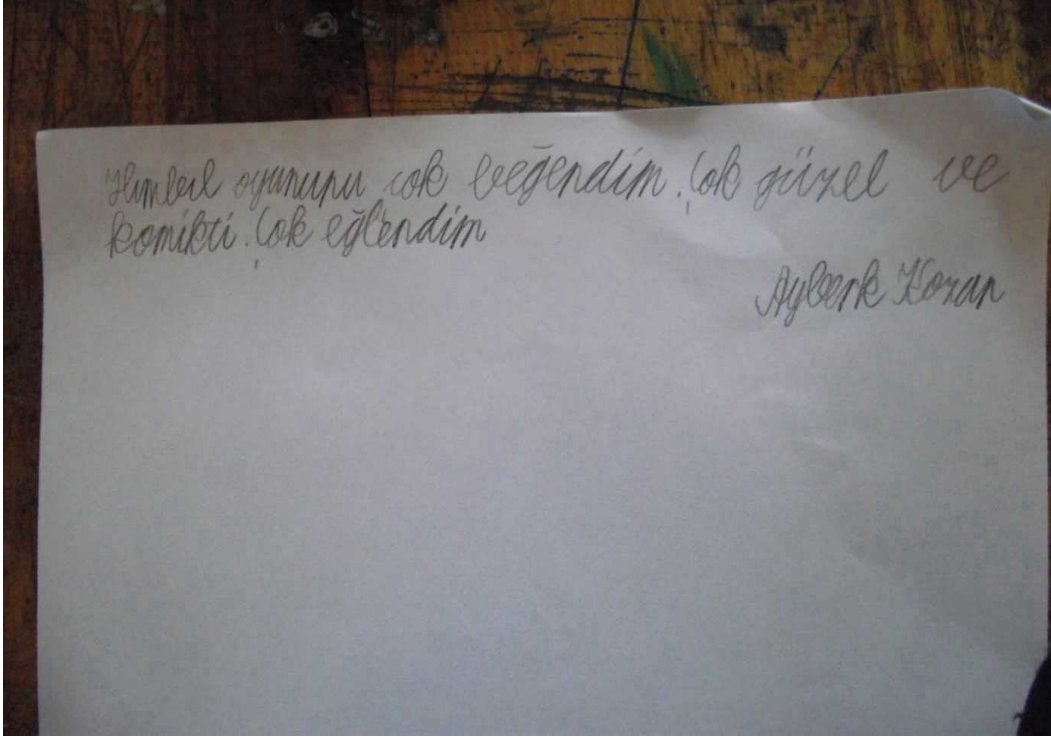 Hımbıl oyununu cok beğendim. Çok güzel ve
komikti. Çok eğlendim
Ayberk Kozan